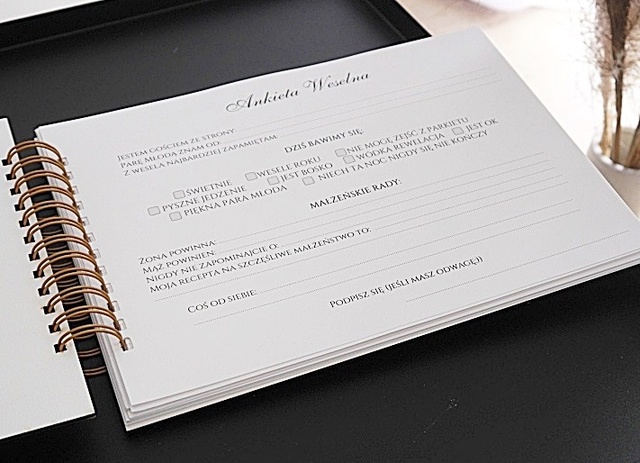 Ankieta Weselna
JESTEM GOŚCIEM ZE STRONY:
PARĘ MŁODĄ ZNAM OD:
Z WESELA NAJBARDZIEJ ZAPAMIĘTAM:
DZIŚ BAWIMY SIĘ:
ŚWIETNIE WESELE ROKU NIE MOGĘ ZEJŚĆ Z PARKIETU
PYSZNE JEDZENIE JEST BOSKO WÓDKA REWELACJA JEST OK
PIĘKNA PARA MŁODA NIECH TA NOC NIGDY SIĘ NIE KOŃCZY
MAŁŻEŃSKIE RADY:
ŻONA POWINNA:
MĄŻ POWINIEN:
NIGDY NIE ZAPOMINAJCIE O:
MOJA RECEPTA NA SZCZĘŚLIWE MAŁŻEŃSTWO TO:
COŚ OD SIEBIE:
PODPISZ SIĘ (JEŚLI MASZ ODWAGĘ))